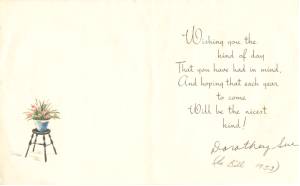 Wishing you the
kind of day
That you have had in mind,
And hoping that each year
to come
Will be the nicest
kind!
Dorothy Sue
(to Bill 1953)